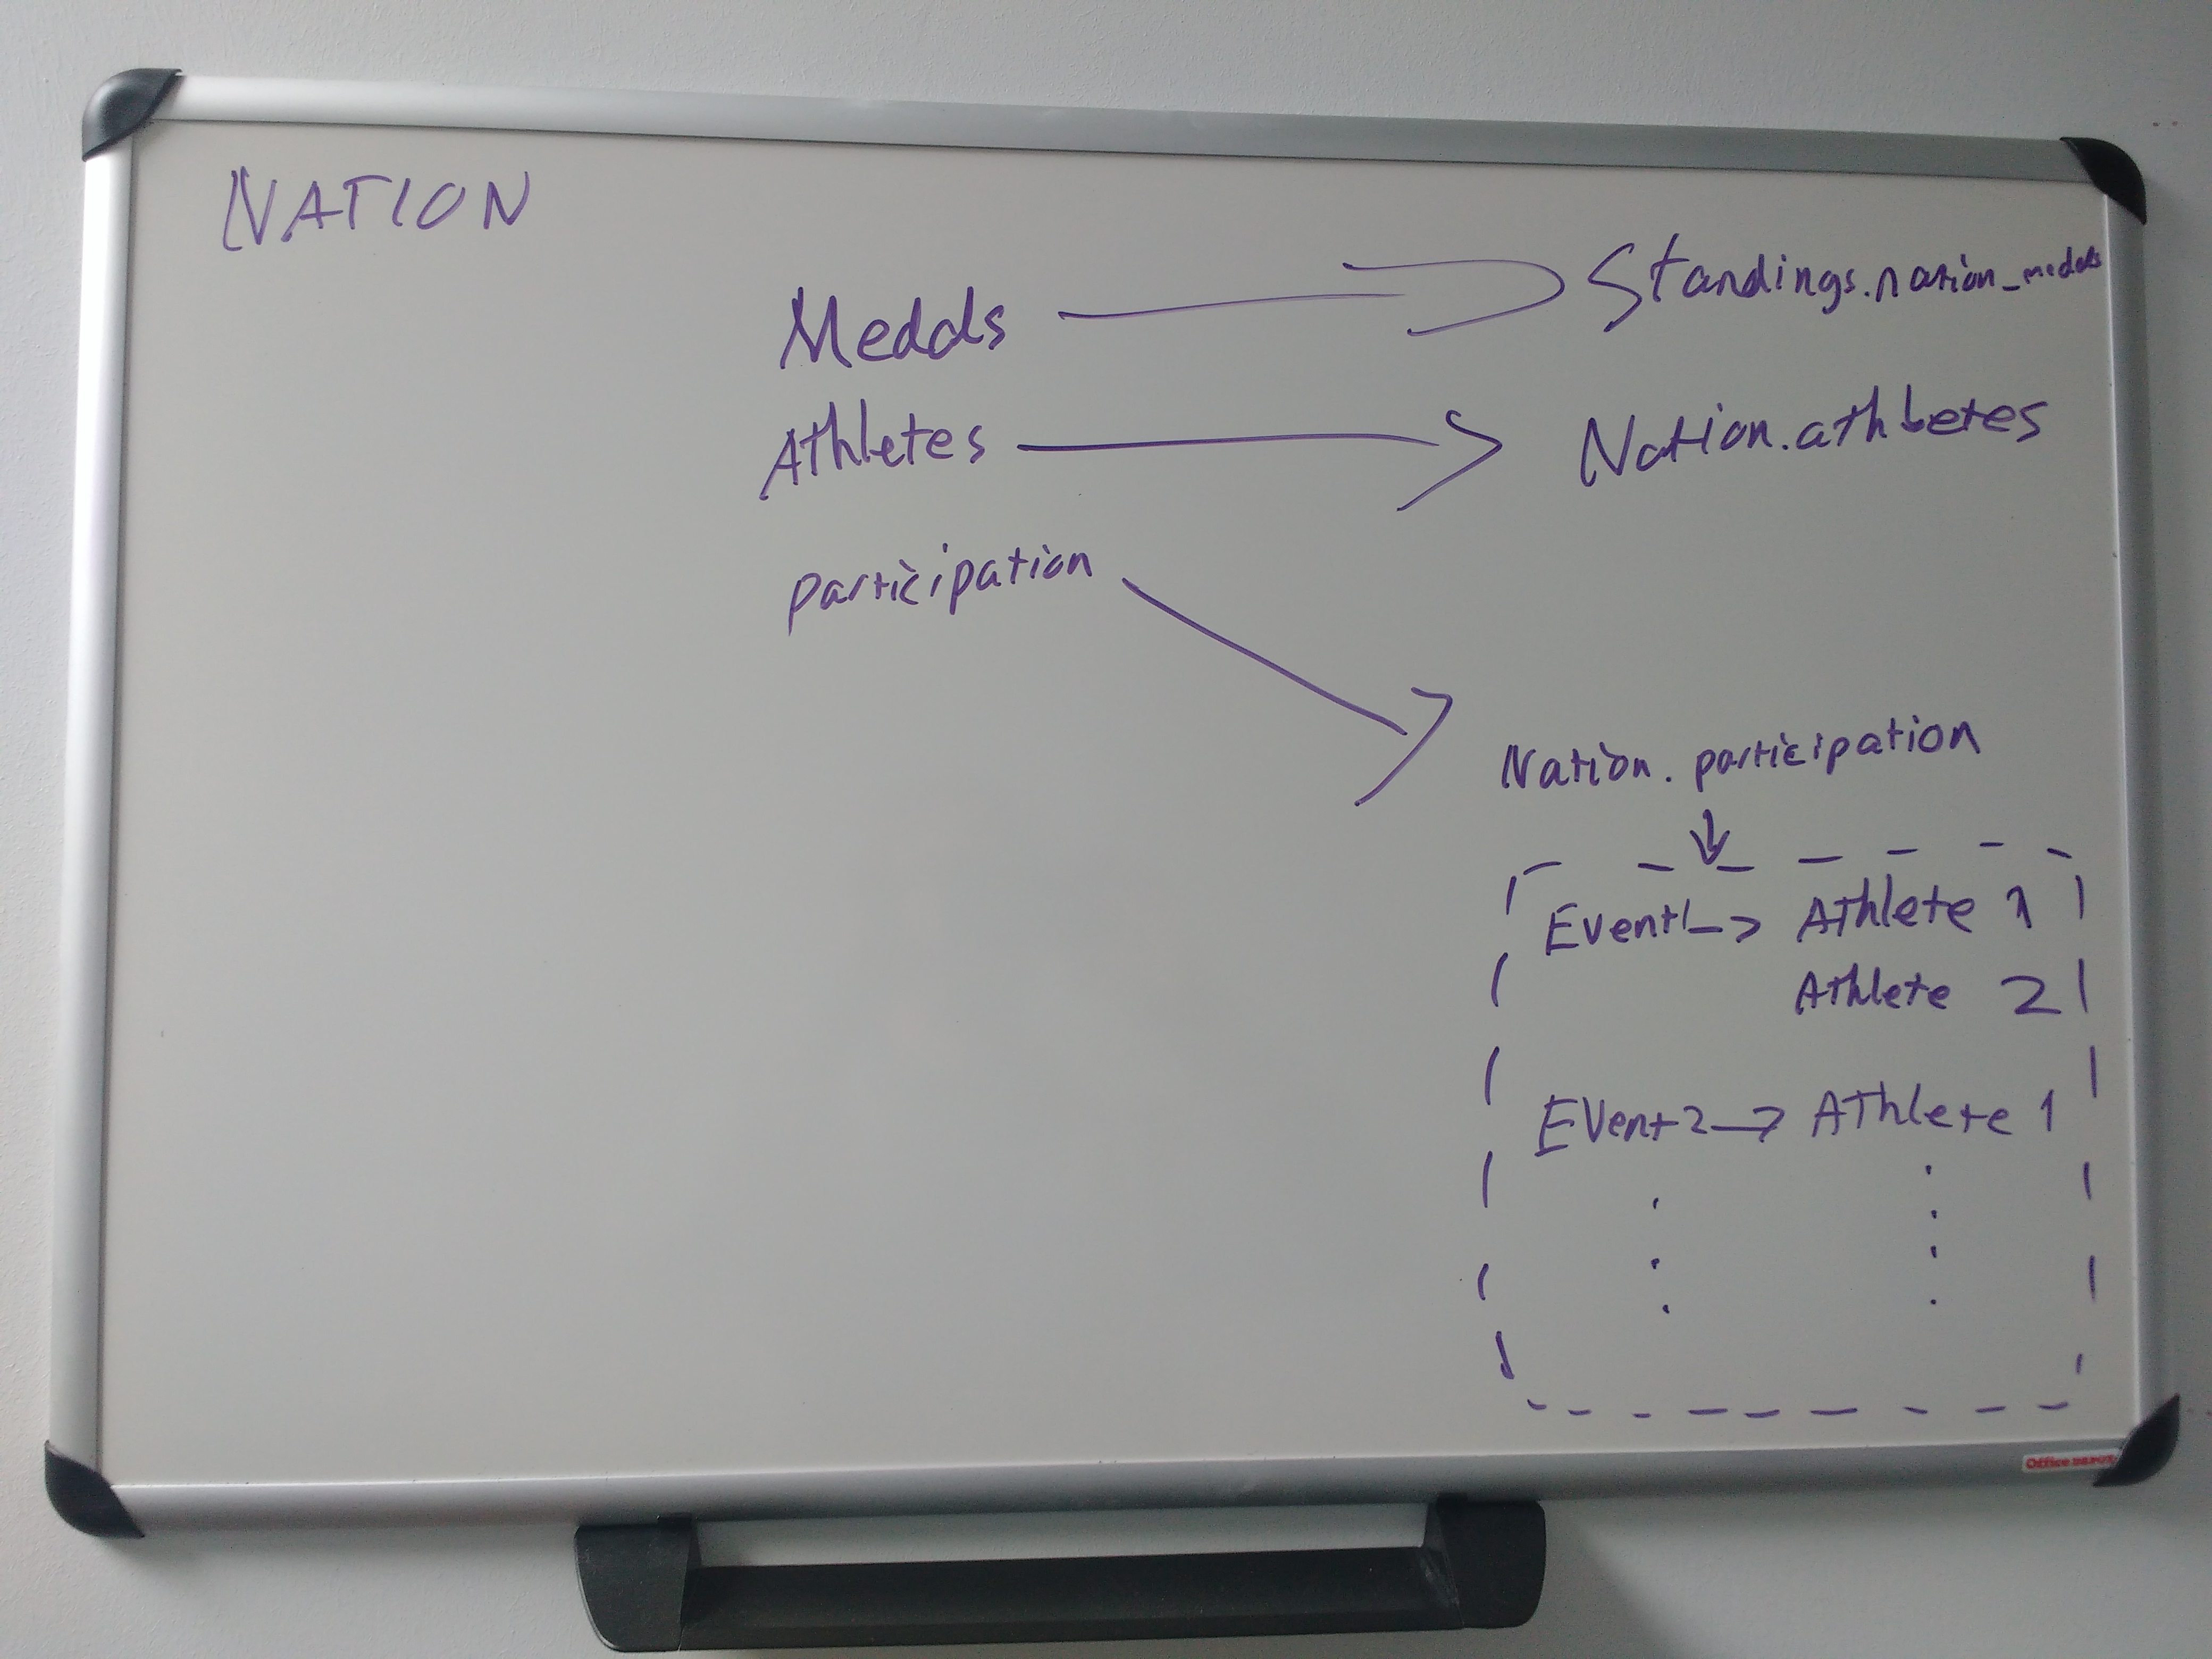 NATION
Medals
Standings.nation_medals
Athletes
Nation.athletes
participation
Nation. participation
Event1 -> Athlete 1
Athlete 2
Event 2 -> Athlete 1
Office DEPOT